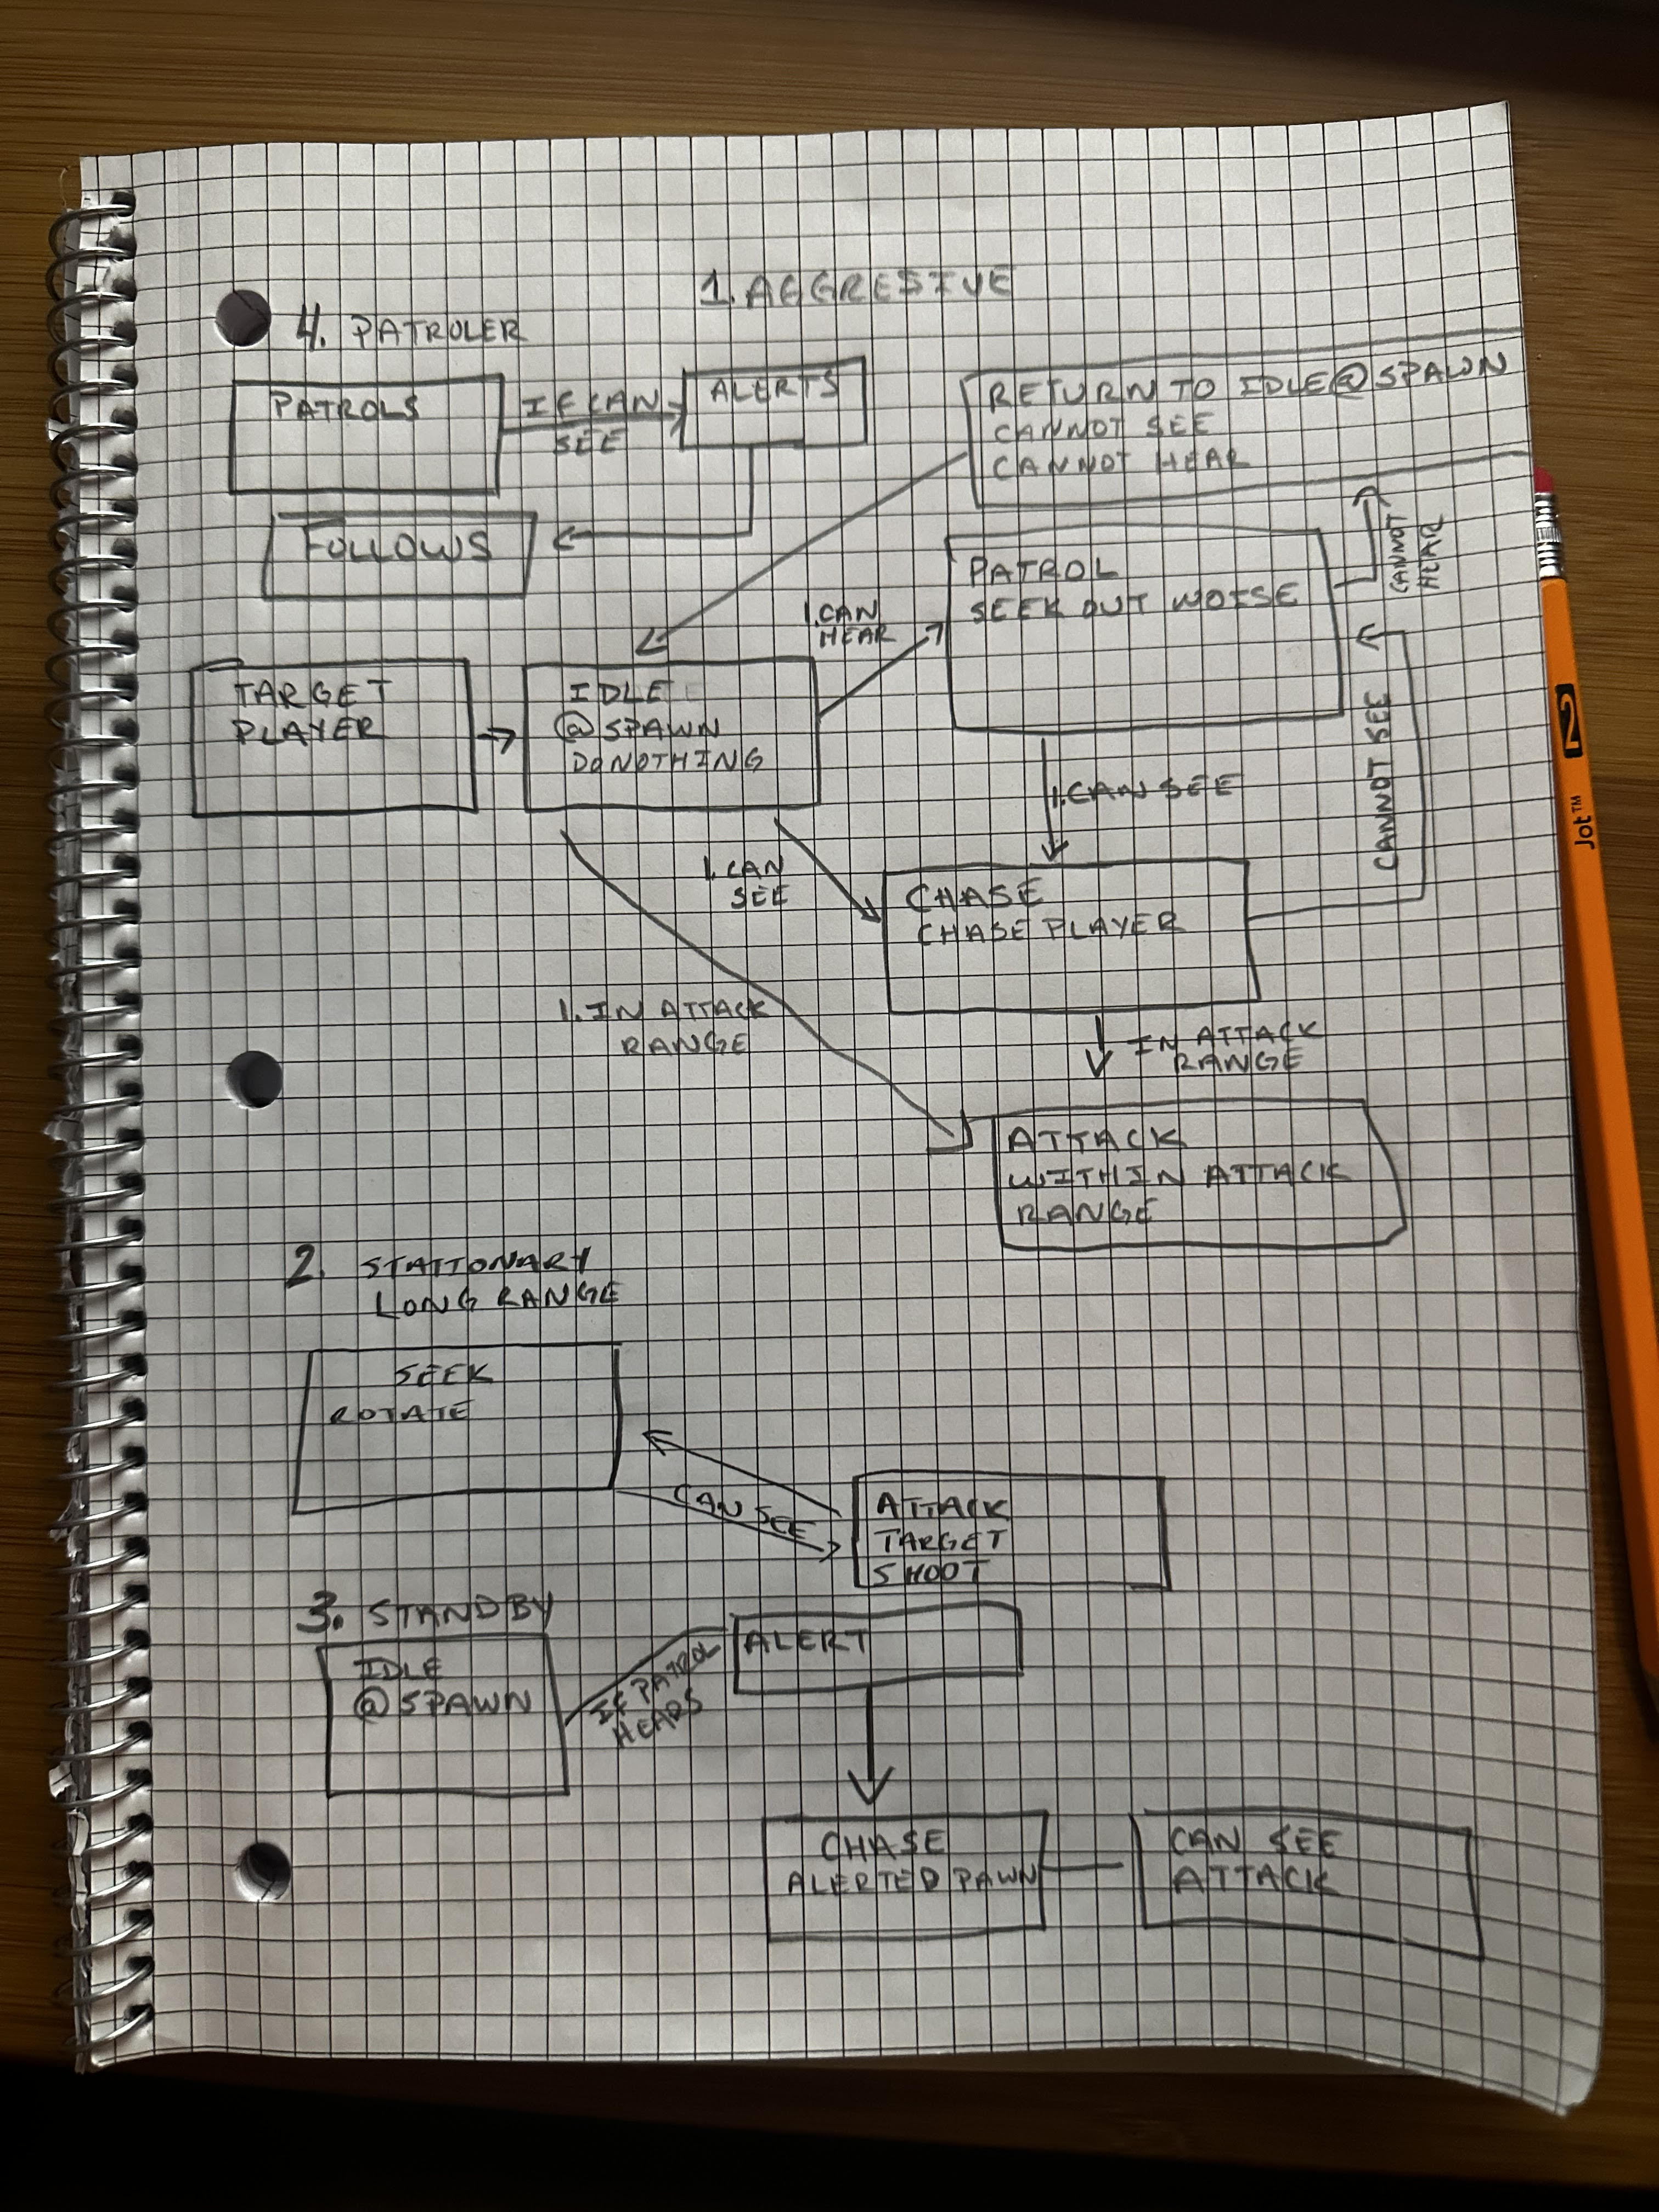 1. AGGRESIVE
4. PATROLER
PATROLS
IF CAN
SEE
ALERTS
FOLLOWS
RETURN TO IDLE@SPAWN
CANNOT SEE
CANNOT HEAR
CANNOT
HEAR
PATROL
SEEK OUT NOISE
1. CAN
HEAR
TARGET
PLAYER
IDLE
@SPAWN
DO NOTHING
1. CAN SEE
CANNOT SEE
1. CAN
SEE
CHASE
CHASE PLAYER
1. IN ATTACK
RANGE
IN ATTACK
RANGE
ATTACK
WITHIN ATTACK
RANGE
2. STATIONARY
LONG RANGE
SEEK
ROTATE
CAN SEE
ATTACK
TARGET
SHOOT
3. STANDBY
IDLE
@SPAWN
IF PATROL
HEADS
ALERT
CHASE
ALERTED PAWN
CAN SEE
ATTACK
2
Jot™